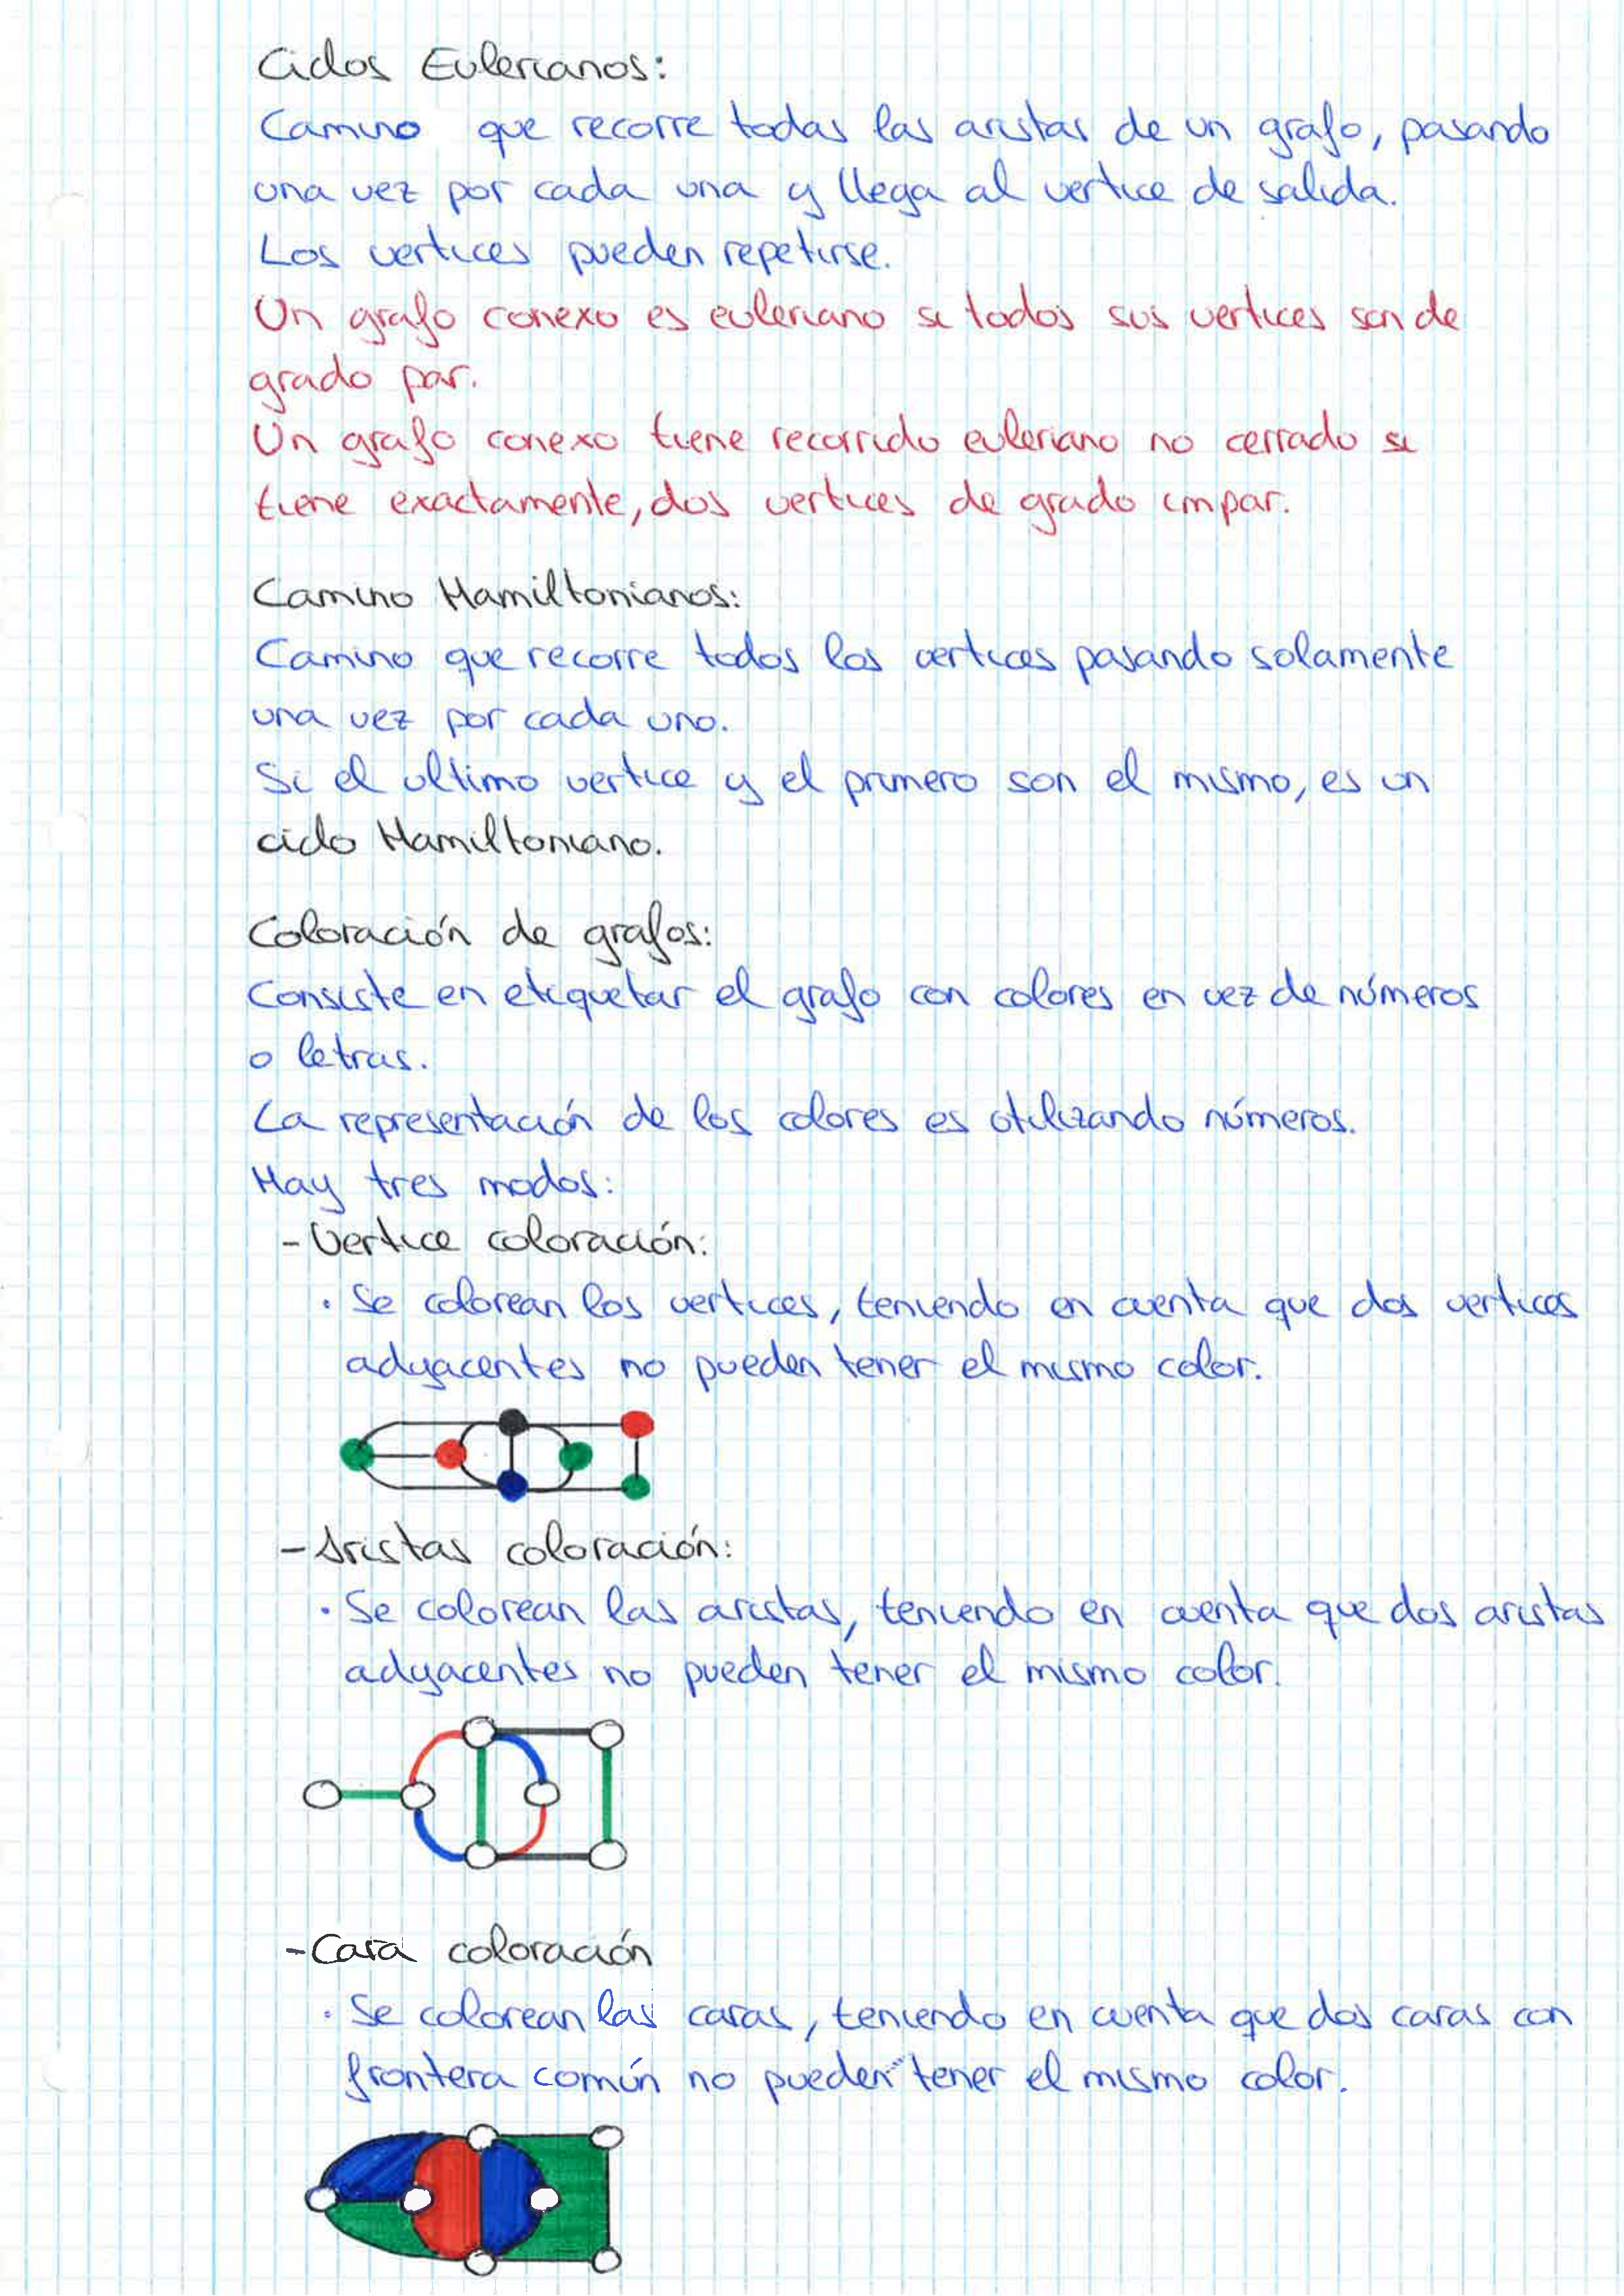 Ciclos Eulerianos:
Camino que recorre todas las aristas de un grafo, pasando
una vez por cada una y llega al vertice de salida.
Los vertices pueden repetirse.
Un grafo conexo es euleriano si todos sus vertices son de
grado par.
Un grafo conexo tiene recorrido euleriano no cerrado si
tiene exactamente, dos vertices de grado impar.
Camino Hamiltonianos:
Camino que recorre todos los vertices pasando solamente
una vez por cada uno.
Si el ultimo vertice y el primero son el mismo, es un
ciclo Hamiltoniano.
Coloración de grafos:
Consiste en etiquetar el grafo con colores en vez de números
o letras.
La representación de los colores es utilizando números.
Hay tres modos:
- Vertice coloración:
· Se colorean los vertices, teniendo en cuenta que dos vertices
adyacentes no pueden tener el mismo color.
- Aristas coloración:
· Se colorean las aristas, teniendo en cuenta que dos aristas
adyacentes no pueden tener el mismo color.
- Cara coloración
· Se colorean las caras, teniendo en cuenta que dos caras con
frontera común no pueden tener el mismo color.